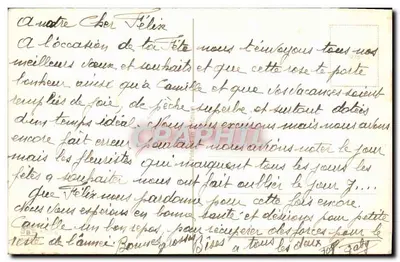 A notre Cher Félix
A l'occasion de ta Fête nous t'envoyons tous nos
meilleurs vœux et souhaits et que cette rose te porte
bonheur ainsi qu'à Camille et que vos vacances soient
remplies de joie, de pêche superbe et surtout dotées
d'un temps idéal. Nous nous excusons mais nous avons
encore fait erreur pourtant nous avions noter le jour
mais les fleuristes qui marquent tous les jours les
fêtes a souhaiter nous ont fait oublier le jour J....
Que Félix nous pardonne pour cette fois encore.
Nous vous espérons en bonne santé et désirons pour petite
Camille un bon repos, pour récupérer des forces pour le
reste de l'année. Bonnes grosses Bises a tous les deux